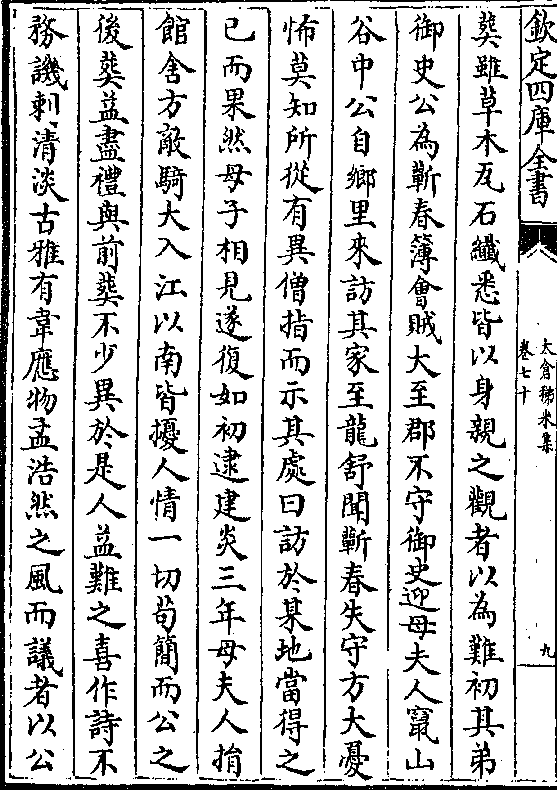 欽定四庫全書
太倉稊米集
卷七十
九
葬雖草木瓦石纖悉皆以身親之觀者以為難初其弟
御史公為蘄春簿會賊大至郡不守御史迎母夫人竄山
谷中公自鄉里來訪其家至龍舒聞蘄春失守方大憂
怖莫知所從有異僧指而示其處曰訪於某地當得之
已而果然母子相見遂復如初逮建炎三年母夫人捐
館舍方敵騎大入江以南皆擾人情一切茍簡而公之
後葬益盡禮與前葬不少異於是人益難之喜作詩不
務譏刺清淡古雅有韋應物孟浩然之風而議者以公